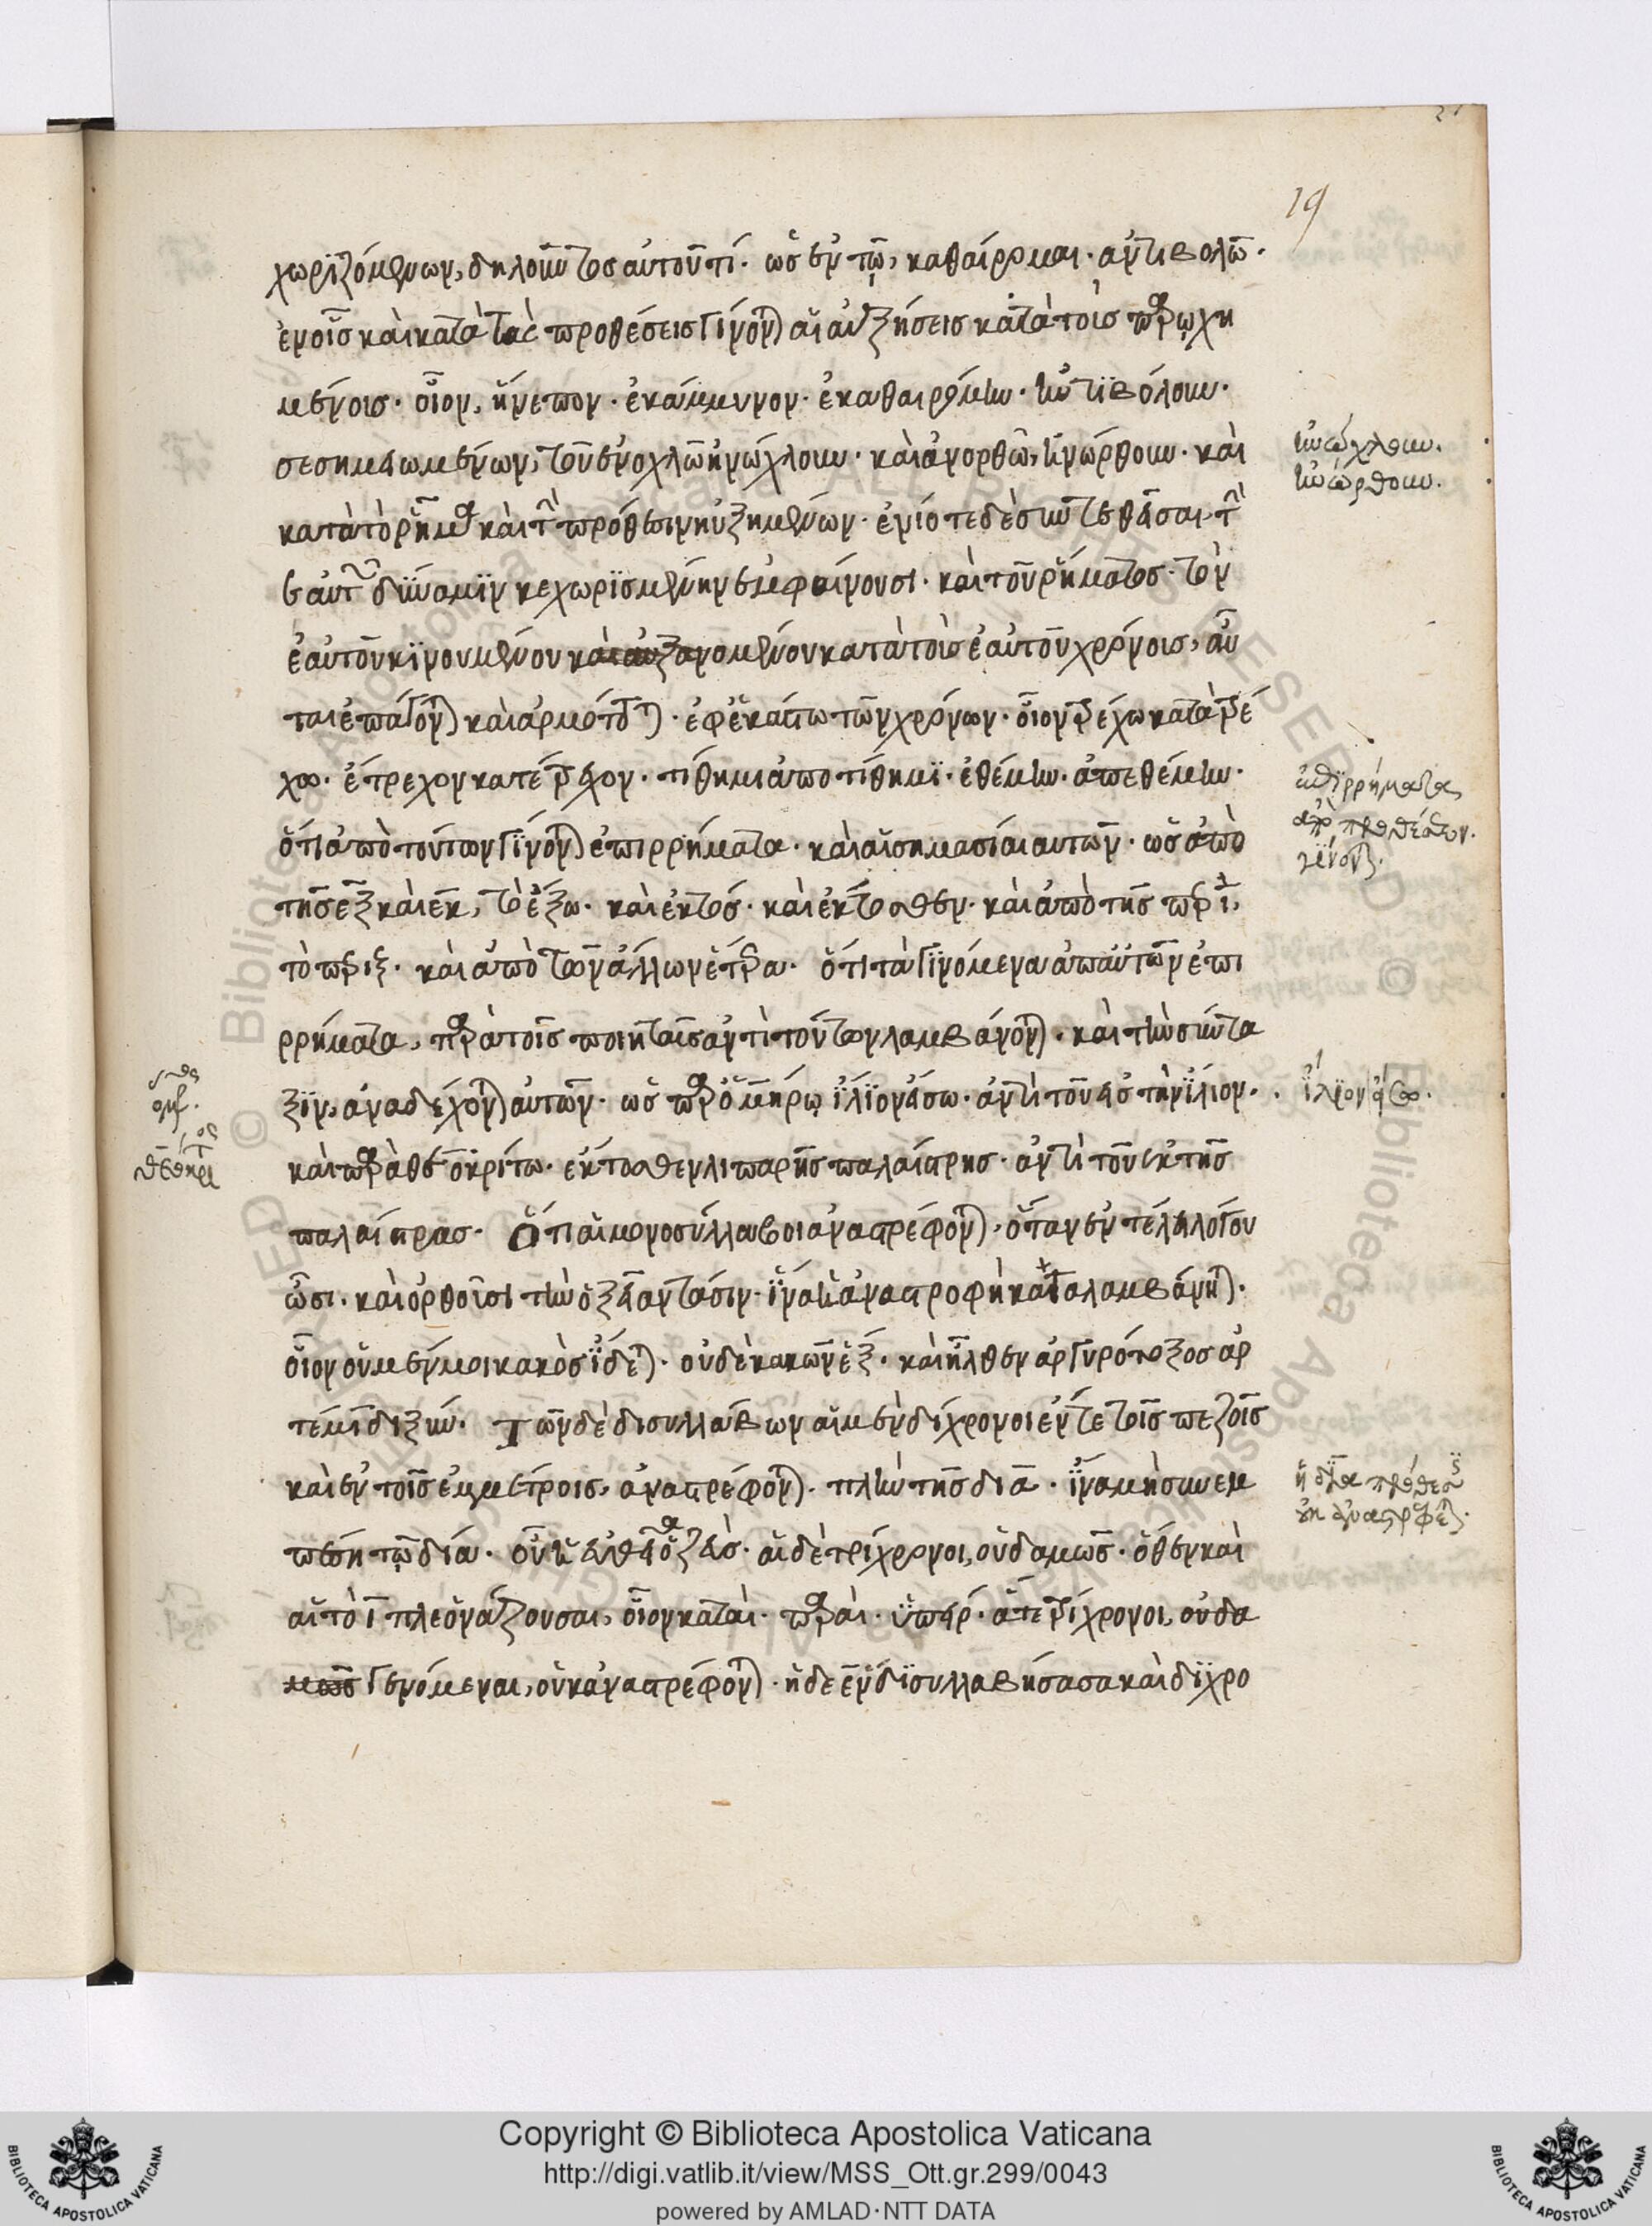 19
χωριζόμενων, δηλοῦντος αὐτοῦ τί· ὡς ἐν τῷ, καθαίρομαι· ἀντιβολῶ·
ἐν οἷς καὶ κατὰ τὰς προθέσεις γίνονται αἱ αὐξήσεις κατὰ τοὺς παρῳχη
μένοις· οἷον, ἤνεπον· ἐκάμμυνον· ἐκαθαιρόμην· ἠντιβόλουν·
σεσημειωμένων, τοῦ ἐνοχλῶ ἠνώχλουν· καὶ ἀνορθῶ, ἠνώρθουν· καὶ
κατὰ τὸ ῥῆμα καὶ τὴν πρόθεσιν ηὐξημένων· ἐνίοτε δὲ συντεθεῖσαι τὴν
ἑαυτῶν δύναμιν κεχωρισμένην ἐμφαίνουσι· καὶ τοῦ ῥήματος τὸν
ἑαυτοῦ κινουμένου καὶ αὐξανομένου κατὰ τοὺς ἑαυτοῦ χρόνους, αὗ
ται ἐπάγονται καὶ ἁρμόττονται· ἐφ' ἑκάστω τῶν χρόνων· οἷον τρέχω κατατρέ
χω· ἔτρεχον κατέτρεχον· τίθημι ἀποτίθημι· ἐθέμην· ἀπεθέμην·
ὅτι ἀπὸ τούτων γίνονται ἐπιρρήματα· καὶ αἱ σημασίαι αὐτῶν· ὡς ἀπὸ
τῆς ἐξ καὶ ἐκ, τὸ ἔξω· καὶ ἐκτός· καὶ ἔκτοσθεν· καὶ ἀπὸ τῆς περὶ,
τὸ πέριξ· καὶ ἀπὸ τῶν ἄλλων ἕτερα· ὅτι τὰ γινόμενα ἀπ' αὐτῶν ἐπι
ρρήματα, παρὰ τοῖς ποιηταῖς ἀντὶ τούτων λαμβάνονται· καὶ τὴν σύντα
ξιν, ἀναδέχονται αὐτῶν· ὡς παρ' ὁμήρῳ ἴλιον εἴσω· ἀντὶ τοῦ εἰς τὴν ἴλιον·
καὶ παρὰ θεοκρίτω· ἔκτοσθεν λιπαρῆς παλαίστρης· ἀντὶ τοῦ ἐκ τῆς
παλαίστρας· Ὅτι αἱ μονοσύλλαβοι ἀναστρέφονται, ὅταν ἐν τέλει λόγου
ὦσι· καὶ ὀρθοῦσι τὴν ὀξεῖαν τάσιν· ἵνα ἡ ἀναστροφὴ καταλαμβάνηται·
οἷον οὐ μέν μοι κακὸς εἴδεται· οὐδὲ κακῶν ἔξ· καὶ ἦλθεν ἀργυρότοξος ἀρ
τέμιδι ξύν· Τῶν δὲ δισυλλάβων αἱ μὲν δίχρονοι ἔν τε τοῖς πεζοῖς
καὶ ἐν τοῖς ἐμμέτροις, ἀναστρέφονται· πλὴν τῆς διὰ· ἵνα μὴ συνεμ
πέση τῷ δία· αἱ δὲ τρίχρονοι, οὐδαμῶς· ὅθεν καὶ
αἱ τὸ ι πλεονάζουσαι, οἷον καταὶ· παραὶ· ὑπεὶρ· ἅτε τρίχρονοι, οὐδα
μῶς γενόμεναι, οὐκ ἀναστρέφονται· ἡ δὲ ἐνὶ δισυλλαβήσασα καὶ δίχρο
ἠνώχλουν.
ἠνώρθουν.
ἐπιρρήματα
ἀπὸ προθέσεων.
γίνονται.
ἴλιον εἴσω.
ἡ διὰ πρόθεσις
οὐκ ἀναστρέφεται.
Copyright © Biblioteca Apostolica Vaticana
http://digi.vatlib.it/view/MSS_Ott.gr.299/0043
powered by AMLAD·NTT DATA